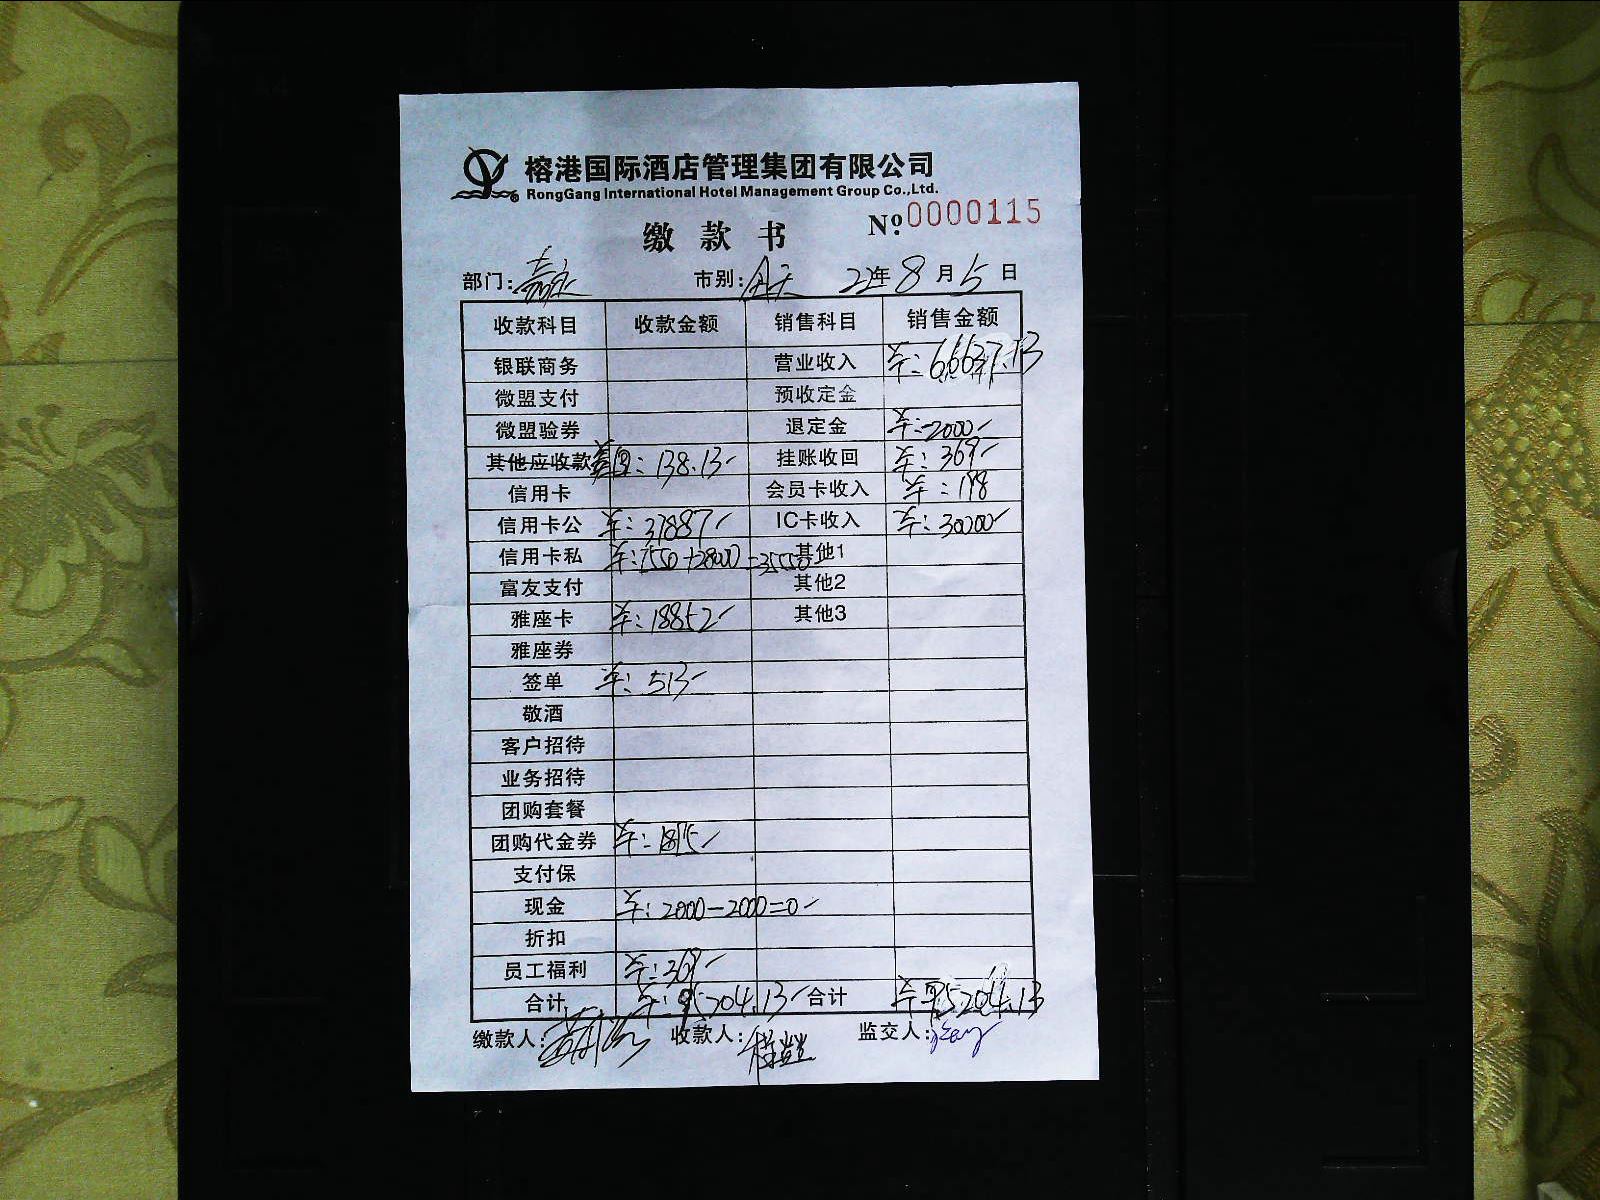 榕港国际酒店管理集团有限公司
RongGang International Hotel Management Group Co.,Ltd.
缴款书 Nº 0000115
部门: 嘉定 市别: 全天 22年8月5日
收款科目 收款金额 销售科目 销售金额
银联商务 营业收入 卡: 66637.13
微盟支付 预收定金
微盟验券 退定金 卡: -2000
其他应收款 138.13 挂账收回 卡: 369
信用卡 会员卡收入 卡: 198
信用卡公 卡: 37887 IC卡收入 卡: 30000
信用卡私 卡: 7550+28000=35550 其他1
富友支付 其他2
雅座卡 卡: 18852 其他3
雅座券
签单 卡: 513
敬酒
客户招待
业务招待
团购套餐
团购代金券 卡: 1895
支付保
现金 卡: 2000-2000=0
折扣
员工福利 卡: 369
合计 卡: 95204.13 合计 卡: 95204.13
缴款人: 收款人: 监交人: